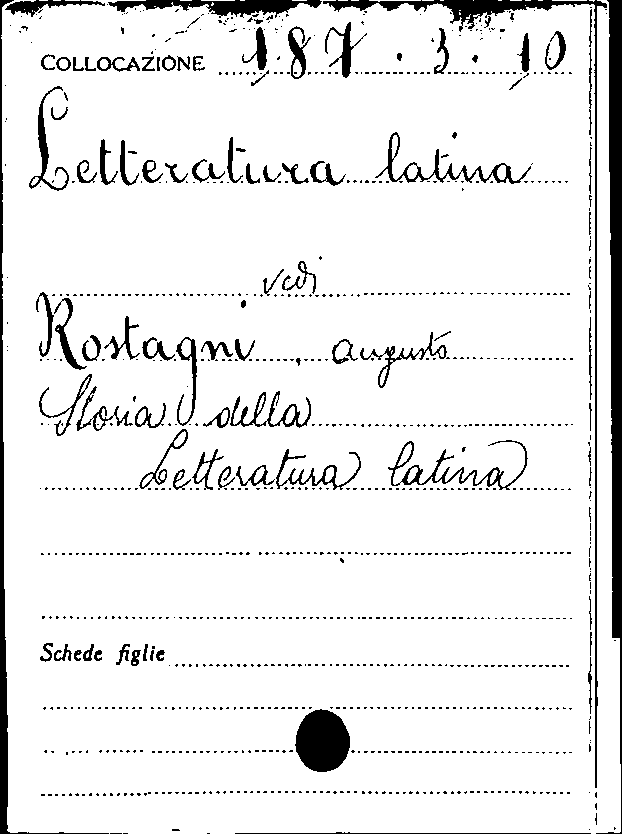 COLLOCAZIONE 187.3.10
Letteratura latina
vedi
Rostagni, Augusto
Storia della
Letteratura latina
Schede figlie